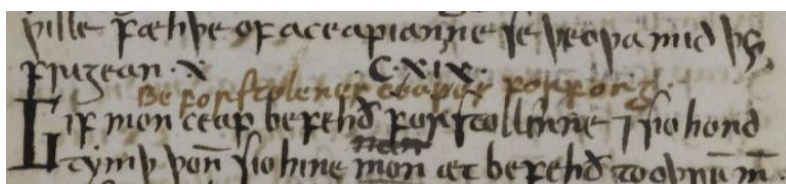 wille fæhþe of aceapianne se þeowa mid þy
frigean · X C·XIX·
Be forstolenes ceapes forfong·
Gif mon ceap befehð forstollenne ⁊ sio hond
man
tymð þoñ sio hine mon æt befehð to oþrū m̄·